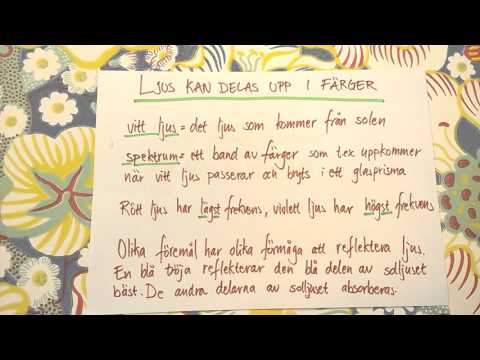 LJUS KAN DELAS UPP I FÄRGER
vitt ljus = det ljus som kommer från solen
spektrum = ett band av färger som tex uppkommer
när vitt ljus passerar och bryts i ett glasprisma
Rött ljus har lägst frekvens, violett ljus har högst frekvens
Olika föremål har olika förmåga att reflektera ljus.
En blå tröja reflekterar den blå delen av solljuset
bäst. De andra delarna av solljuset absorberas.